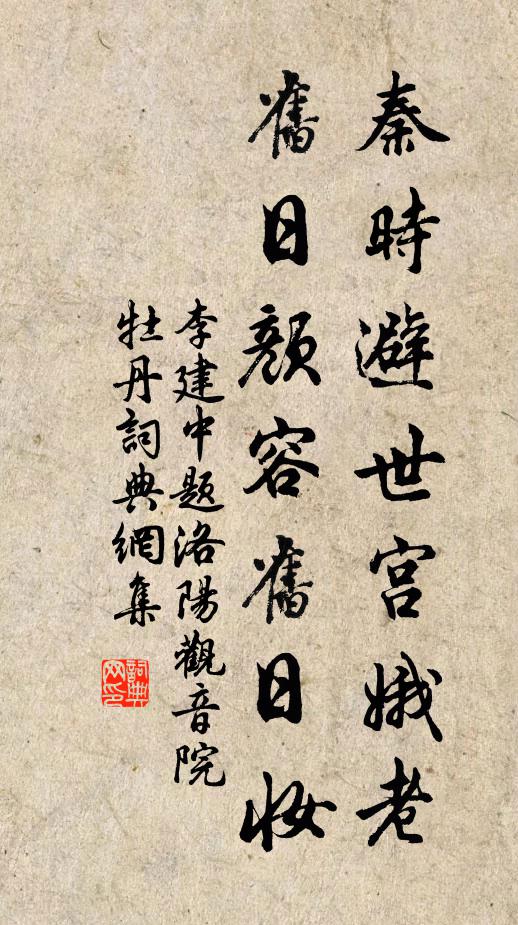 秦時避世宫娥老
舊日顏容舊日妝
李建中题洛陽觀音院
牡丹詞典網集
詞典网印